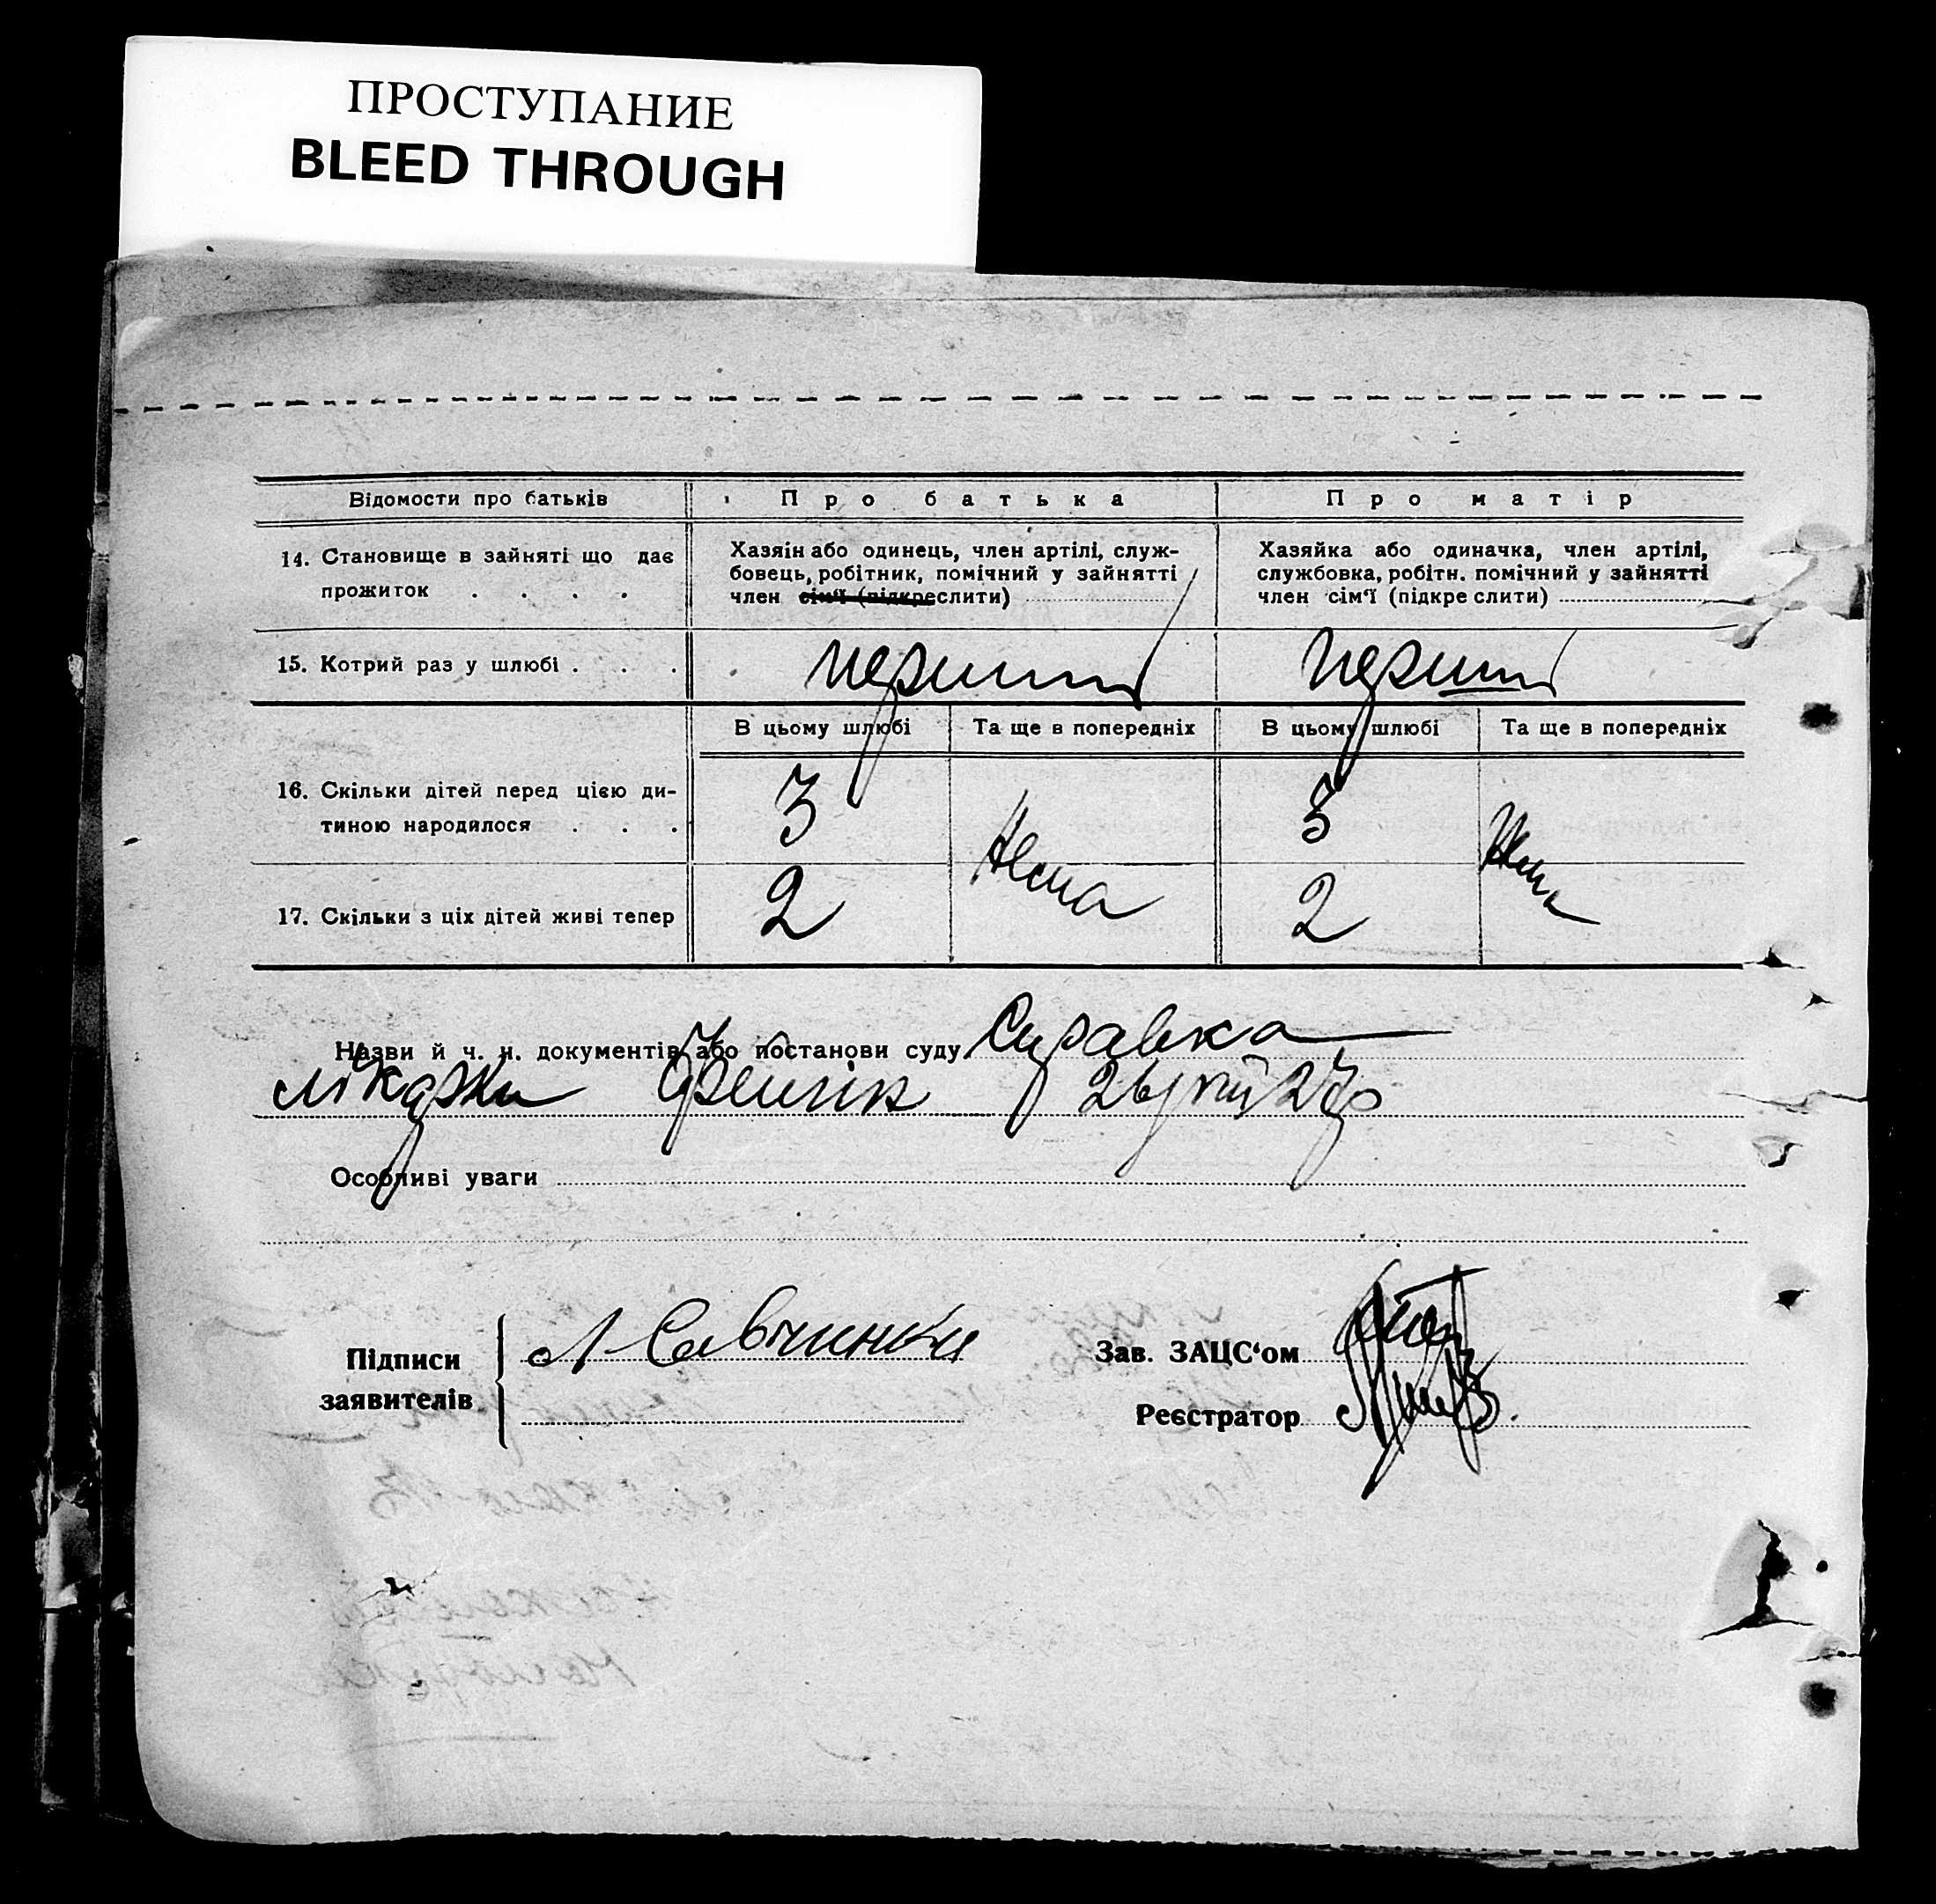 ПРОСТУПАНИЕ
BLEED THROUGH
Відомости про батьків
Про батька
Про матір
14. Становище в зайняті що дає
прожиток . . . .
Хазяін або одинець, член артілі, служ-
бовець, робітник, помічний у зайнятті
член сім'ї (підкреслити)
Хазяйка або одиначка, член артілі,
службовка, робітн. помічний у зайнятті
член сім'ї (підкреслити)
15. Котрий раз у шлюбі . . .
перший
перший
В цьому шлюбі
Та ще в попередніх
В цьому шлюбі
Та ще в попередніх
16. Скільки дітей перед цією ди-
тиною народилося . . .
3
Нема
3
Нема
17. Скільки з ціх дітей живі тепер
2
2
Назви й ч. н. документів або постанови суду Справка
Особливі уваги
Підписи
заявителів
Зав. ЗАЦС'ом
Реєстратор